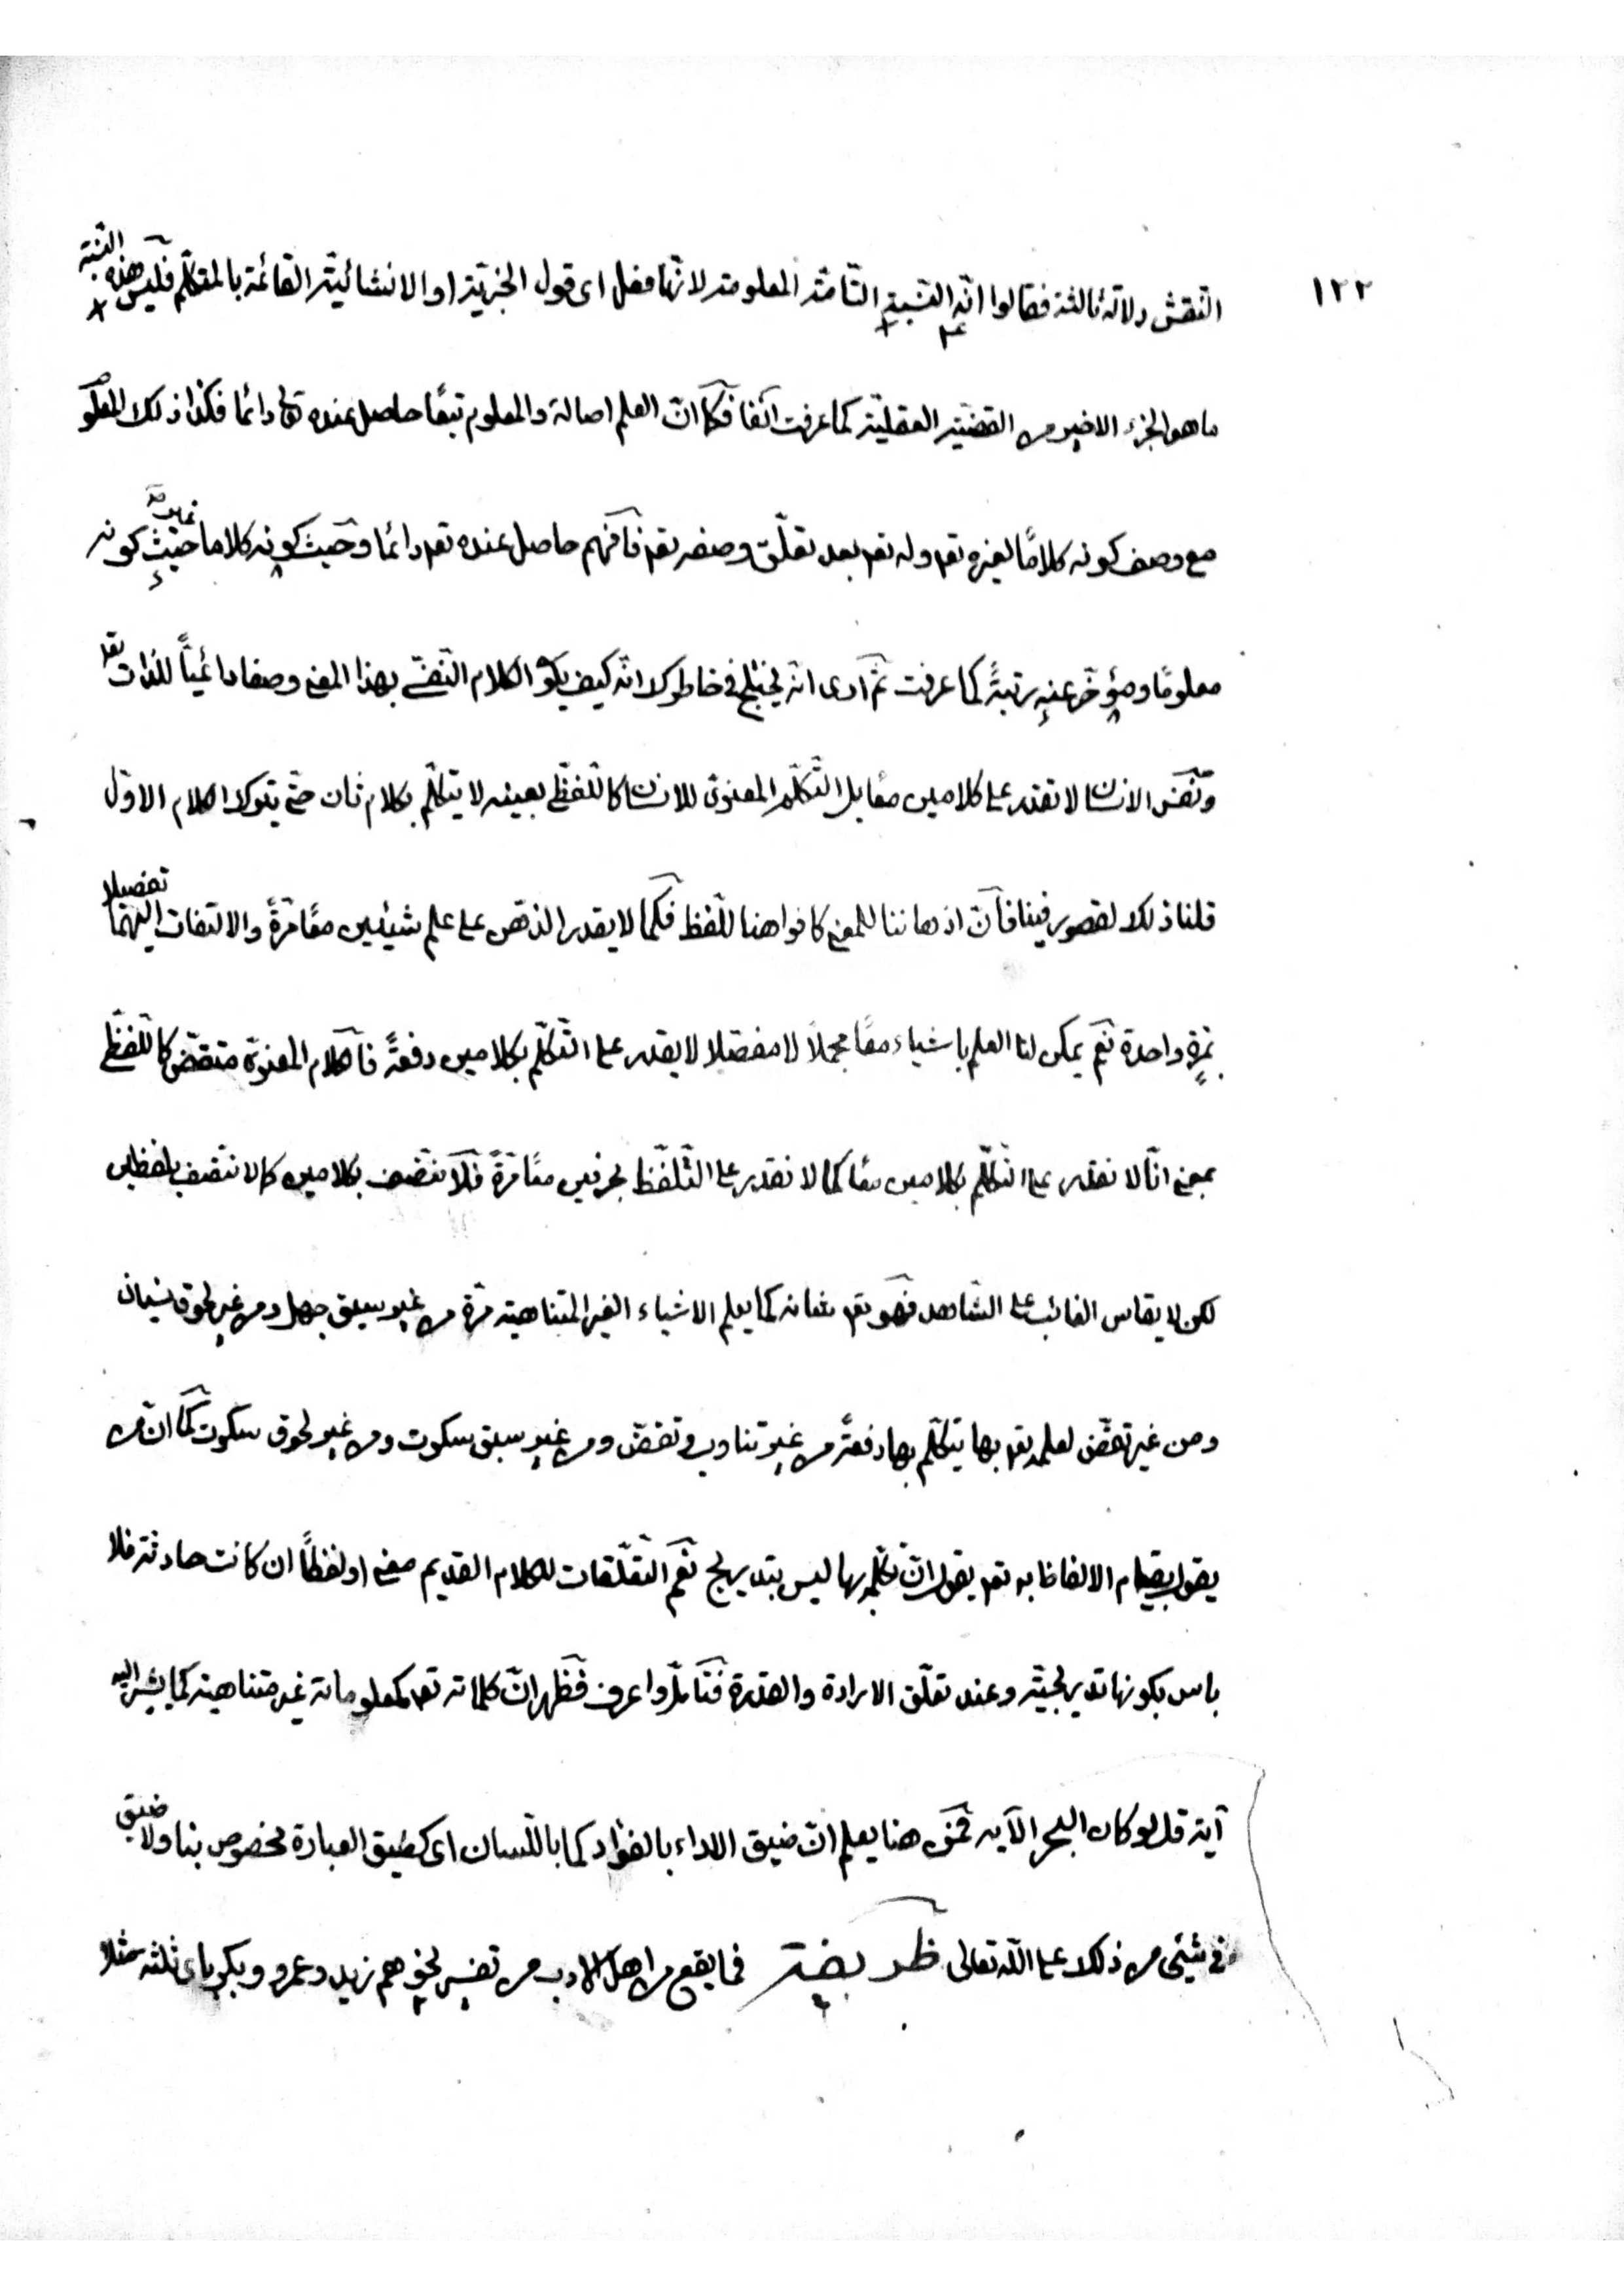 ١٢٢
النقش دلالة ثالثة فقالوا انه النسبة التامة المعلومة لانها فعل اى قول الخبرية او الانشائية القائمة بالمتكلم فليس هذه النسبة
ما هو الجزء الاخير من القضية العقلية كما عرفت آنفا فكما ان العلم اصالة والمعلوم تبعًا حاصل عنده تعالى دائما فكذا ذلك المعلوم
مع وصف كونه كلامًا لغيره تعـ وله تعـ بعد تعلق وصفه تعـ فافهم حاصل عنده تعـ دائما وحيث كونه كلاما حيث كونه
معلومًا ومؤخر عنه رتبةً كما عرفت ثم ادى انه يختلج فى خاطرك انه كيف يكون الكلام النفسى بهذا المعنى وصفا دائميًا للذات تعـ
ونفس الانسان لا تقتدر على كلامين معًا بل التكلم المعنوى للانسان كاللفظى بعينه لا يتكلم بكلام ثان حتى يترك الكلام الاول
قلنا ذلك لقصور فينا فان اذهاننا للمعنى كافواهنا للفظ فكما لا يقدر الذهن على علم شيئين معًا مرةً والالتفات اليهما تفصيلا
بمرة واحدة نعم يمكن لنا العلم باشياء معًا مجملًا لا مفصلا لا يقدر على التكلم بكلامين دفعةً فالكلام المعنوى منقض كاللفظى
بمعنى انا لا نقتدر على التكلم بكلامين معًا كما لا نقتدر على التلفظ بحرفين معًا مرةً فلا نتصف بكلامين كما لا نتصف بلفظين
لكن لا يقاس الغائب على الشاهد فهو تعـ شانه كما يعلم الاشياء الغير المتناهية مرة من غير سبق جهل ومن غير لحوق نسيان
ومن غير تقض لعلمه تعـ بها يتكلم بها دفعةً من غير تناوب وتقض ومن غير سبق سكوت ومن غير لحوق سكوت كما ان من
يقول بقيام الالفاظ به تعـ يقول ان تكلمه بها ليس بتدريج نعم التعلقات للكلام القديم معنى او لفظًا ان كانت حادثة فلا
باس بكونها تدريجية وعند تعلق الارادة والقدرة فتامل واعرف فظهر ان كلماته تعـ كمعلوماته غير متناهية كما يشير اليه
آية قل لو كان البحر الآيه فمن هنا يعلم ان ضيق الاداء بالفؤاد كما باللسان اى كضيق العبارة مخصوص بنا ولا ضيق
فى شيئى من ذلك على الله تعالى فما يقع من اهل الادب من تفسير نحو هم زيد وعمرو وبكر باى ثلثة مثلا